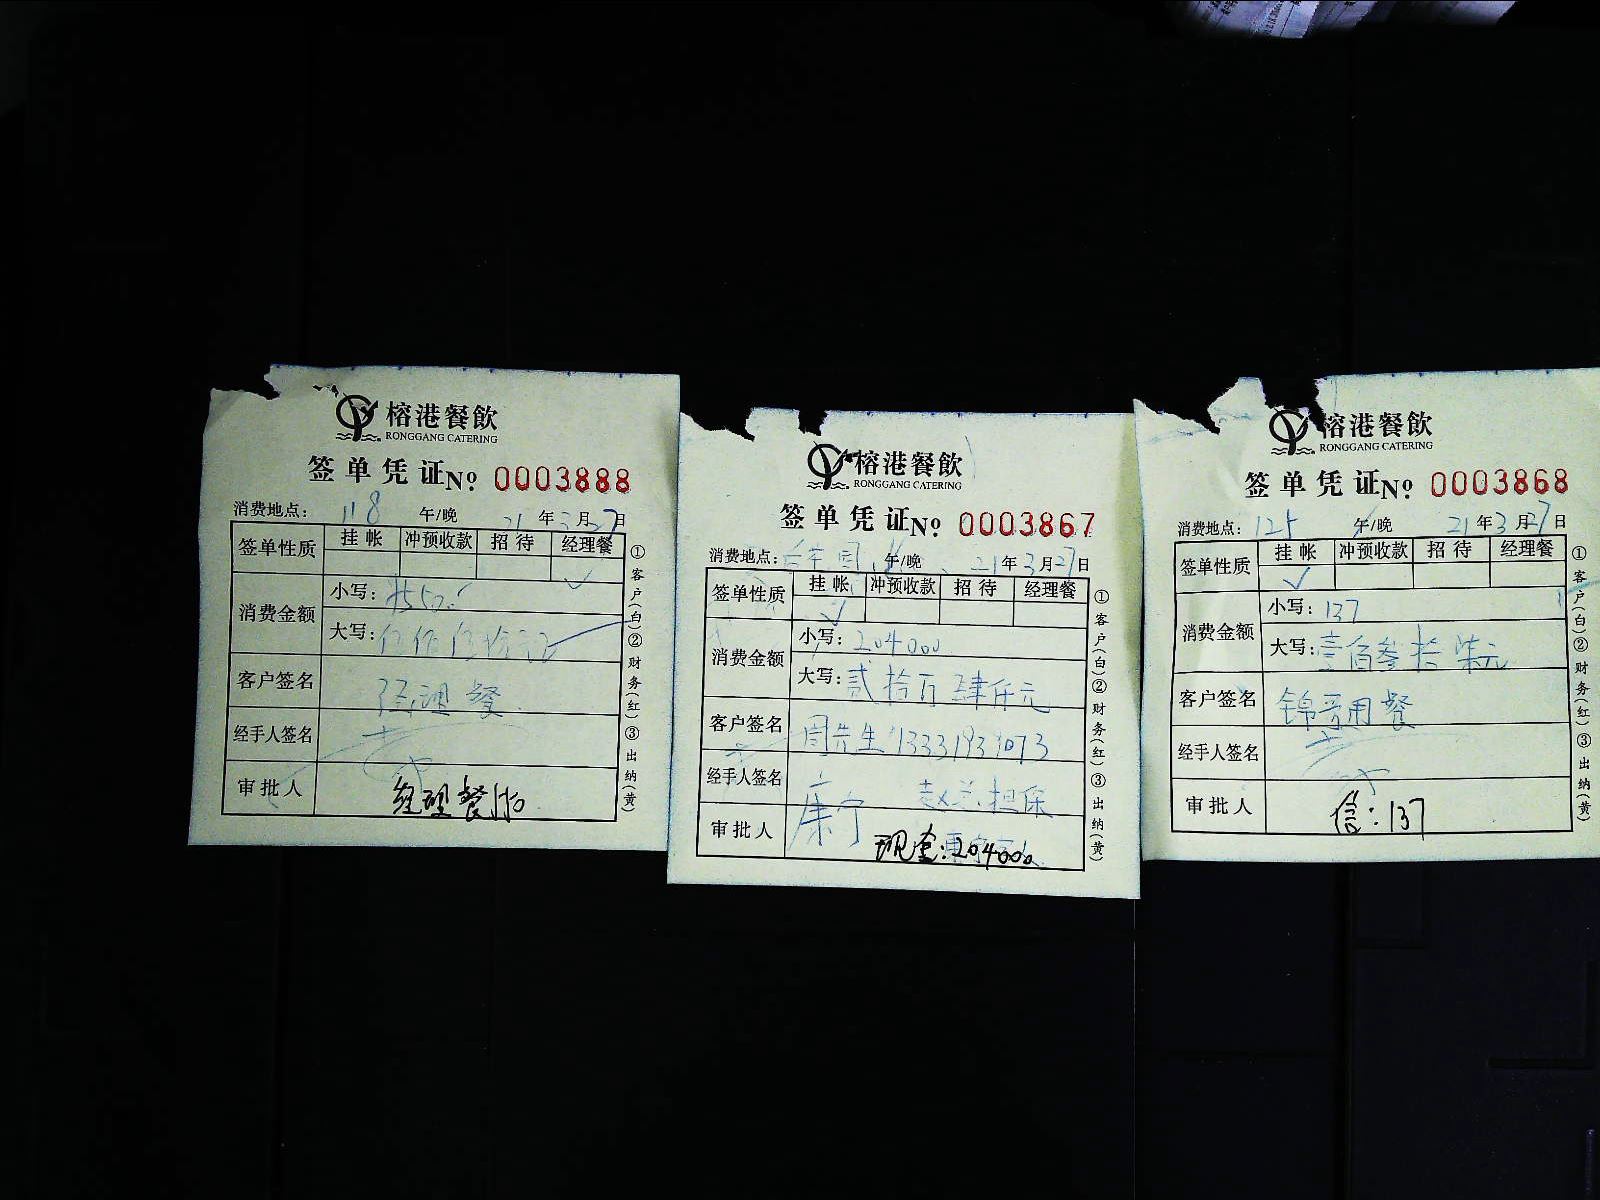 榕港餐飲
RONGGANG CATERING
签单凭证 № 0003888
消费地点: 118 午/晚 21年3月27日
签单性质 挂帐 冲预收款 招待 经理餐
✓
消费金额
小写:
大写:
客户签名 经理餐
经手人签名
审批人 经理餐
①客户(白)②财务(红)③出纳(黄)
榕港餐飲
RONGGANG CATERING
签单凭证 № 0003867
消费地点: 午/晚 21年3月27日
签单性质 挂帐 冲预收款 招待 经理餐
✓
消费金额
小写: 204000
大写: 贰拾万肆仟元
客户签名 周先生
经手人签名 康宁 担保
审批人 现金:204000
①客户(白)②财务(红)③出纳(黄)
榕港餐飲
RONGGANG CATERING
签单凭证 № 0003868
消费地点: 125 午/晚 21年3月27日
签单性质 挂帐 冲预收款 招待 经理餐
✓
消费金额
小写: 137
大写: 壹佰叁拾柒元
客户签名 锦哥用餐
经手人签名
审批人 信:137
①客户(白)②财务(红)③出纳(黄)